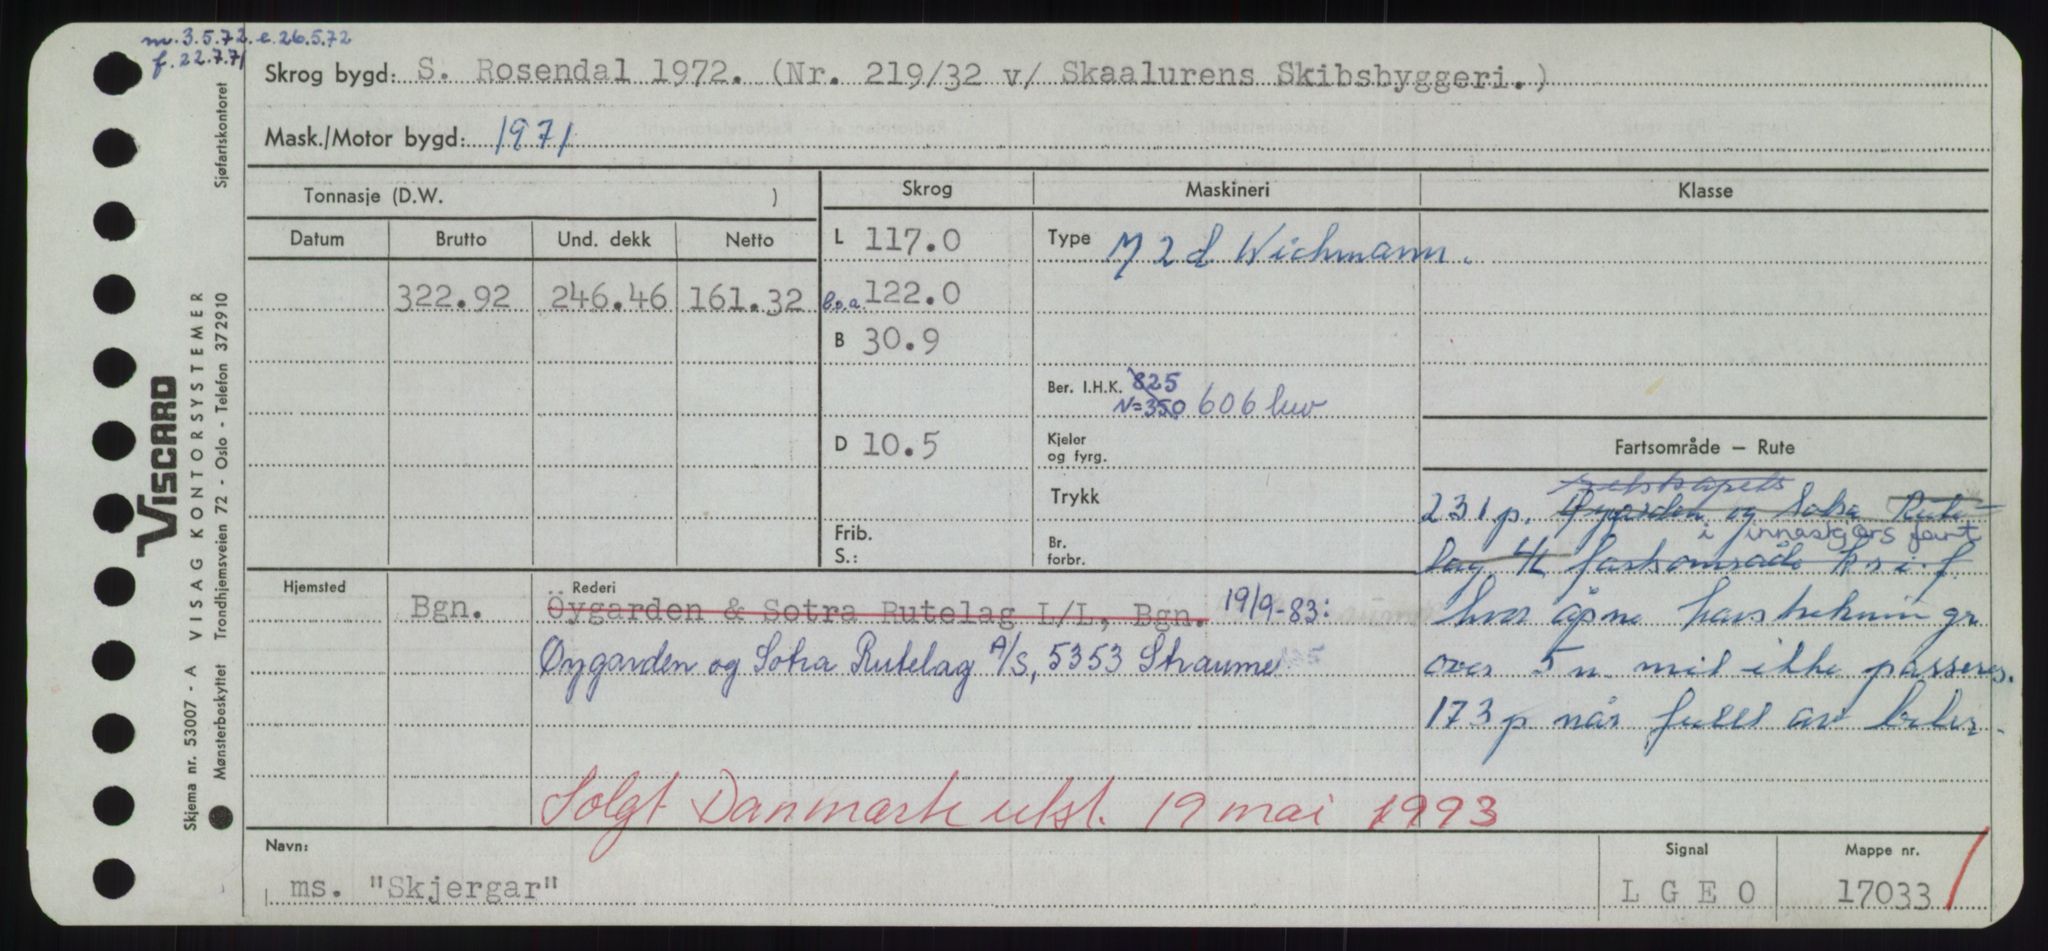 m. 3.5.72. e. 26.5.72
f. 22.7.71
Skrog bygd: S. Rosendal 1972. (Nr. 219/32 v/ Skaalurens Skibsbyggeri.)
Mask./Motor bygd: 1971
Tonnasje (D.W. ) Skrog Maskineri Klasse
Datum Brutto Und. dekk Netto L 117.0 Type M 2 d Wichmann.
322.92 246.46 161.32 l.o.a. 122.0
B 30.9
Ber. I.H.K. 825
N=350 606 hw
D 10.5 Kjeler
og fyrg.
Fartsområde — Rute
Trykk
selskapets
231 p. Øygarden og Sotra Rute-
i innaskjærs fart
Frib.
S.:
Br.
forbr.
lag 4/L fartsområde k.s.i.f.
hvor åpne havstrekninger
over 5 n. mil ikke passeres.
173 p når fullt av biler.
Hjemsted Rederi
Bgn. Öygarden & Sotra Rutelag L/L, Bgn. 19/9-83:
Øygarden og Sotra Rutelag A/S, 5353 Straume
Solgt Danmark utsl. 19 mai 1993
Navn: Signal Mappe nr.
ms. "Skjergar" L G E O 17033
VISCARD
VISAG KONTORSYSTEMER
Skjema nr. 53007 - A
Mønsterbeskyttet Trondhjemsveien 72 - Oslo - Telefon 372910
Sjøfartskontoret